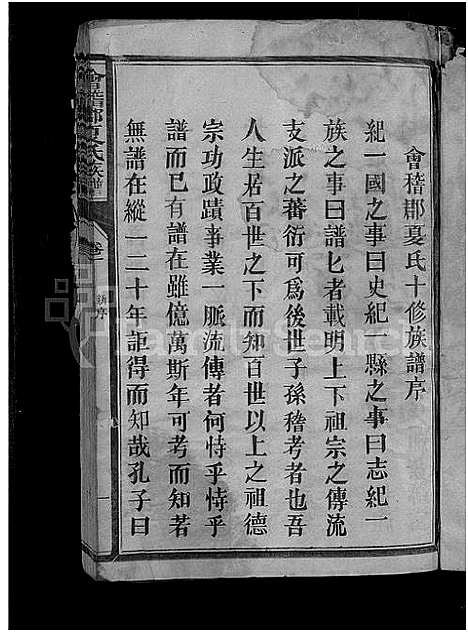 會稽郡夏氏十修族譜序
紀一國之事曰史紀一縣之事曰志紀一
族之事曰譜匕者載明上下祖宗之傳流
支派之蕃衍可為後世子孫稽考者也吾
人生居百世之下而知百世以上之祖德
宗功政蹟事業一脈流傳者何恃乎恃乎
譜而已有譜在雖億萬斯年可考而知若
無譜在縱一二十年誰得而知哉孔子曰
會稽郡夏氏族譜
卷一
序
一